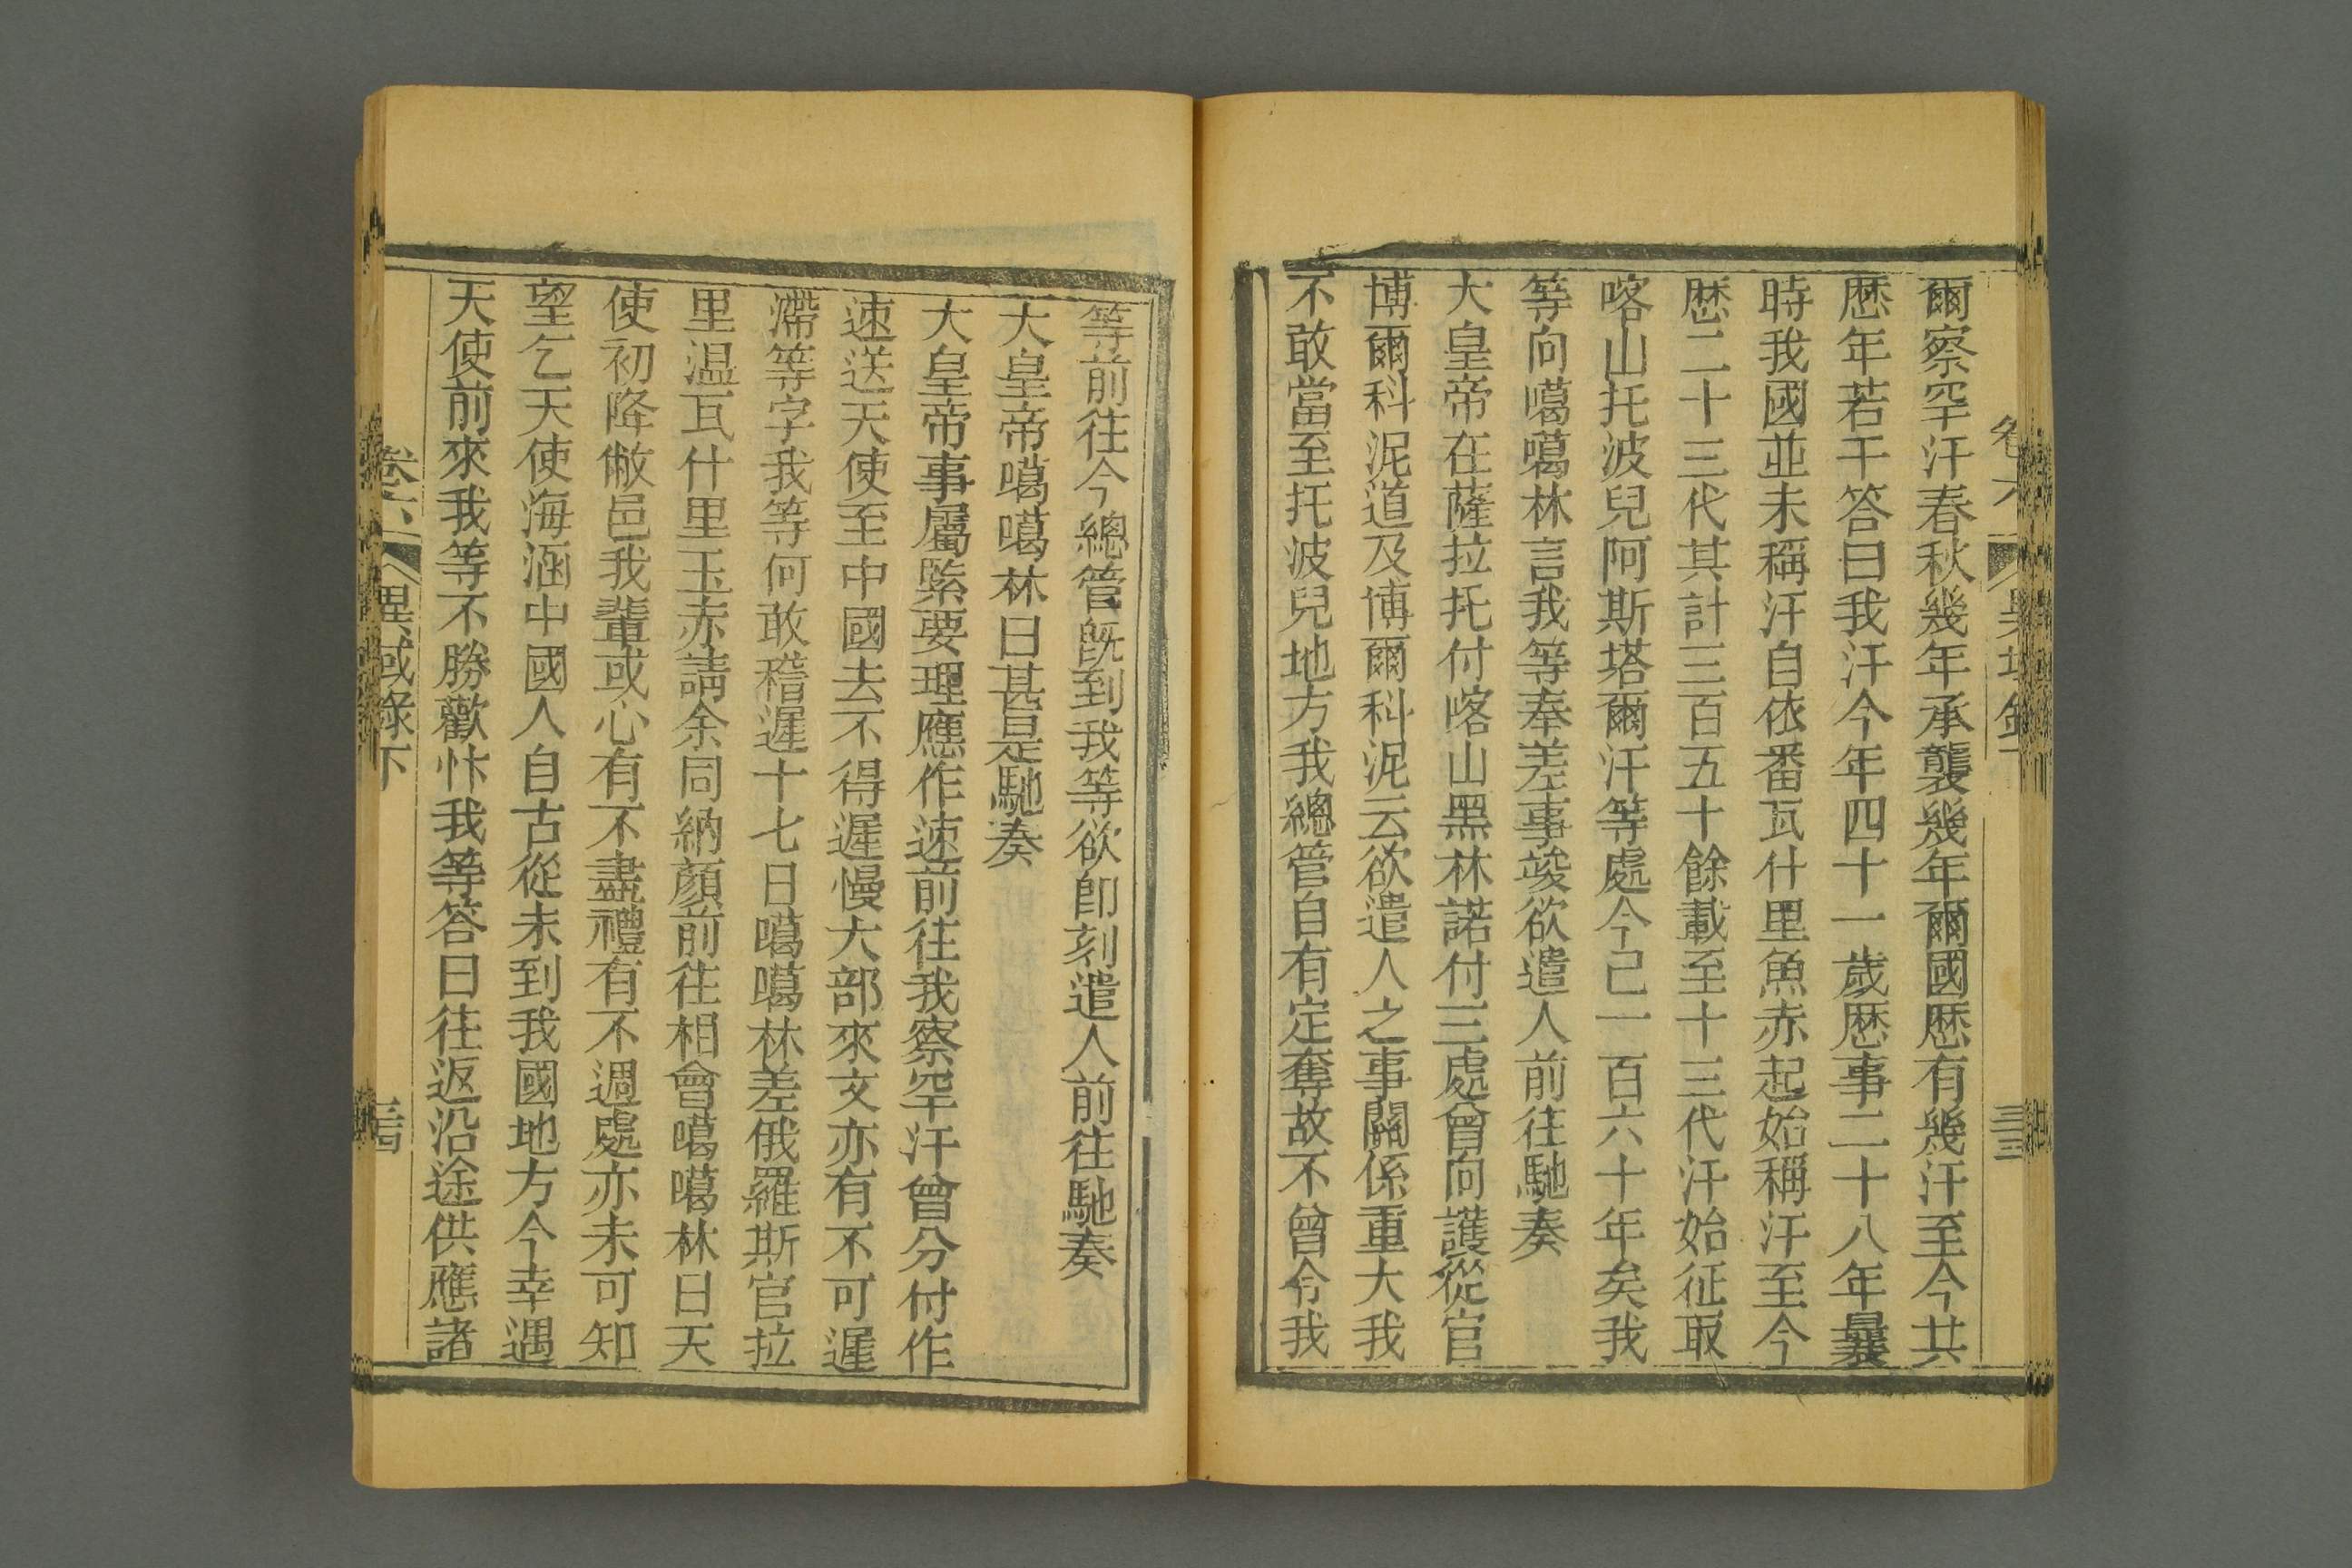 爾察罕汗春秋幾年承襲幾年爾國歷有幾汗至今共
歷年若干答曰我汗今年四十一歲歷事二十八年曩
時我國並未稱汗自依番瓦什里魚赤起始稱汗至今
歷二十三代其計三百五十餘載至十三代汗始征取
喀山托波兒阿斯塔爾汗等處今已一百六十年矣我
等向噶噶林言我等奉差事竣欲遣人前往馳奏
大皇帝在薩拉托付喀山黑林諾付三處曾向護從官
博爾科泥道及博爾科泥云欲遣人之事關係重大我
不敢當至托波兒地方我總管自有定奪故不曾令我
等前往今總管既到我等欲即刻遣人前往馳奏
大皇帝噶噶林曰甚是馳奏
大皇帝事屬緊要理應作速前往我察罕汗曾分付作
速送天使至中國去不得遲慢大部來文亦有不可遲
滯等字我等何敢稽遲十七日噶噶林差俄羅斯官拉
里温瓦什里玉赤請余同納顏前往相會噶噶林曰天
使初降敝邑我輩或心有不盡禮有不週處亦未可知
望乞天使海涵中國人自古從未到我國地方今幸遇
天使前來我等不勝歡忭我等答曰往返沿途供應諸
卷六 異域錄下